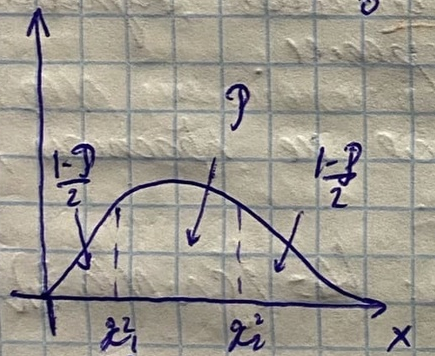 P
1-P
2
1-P
2
χ₁² χ₂² x